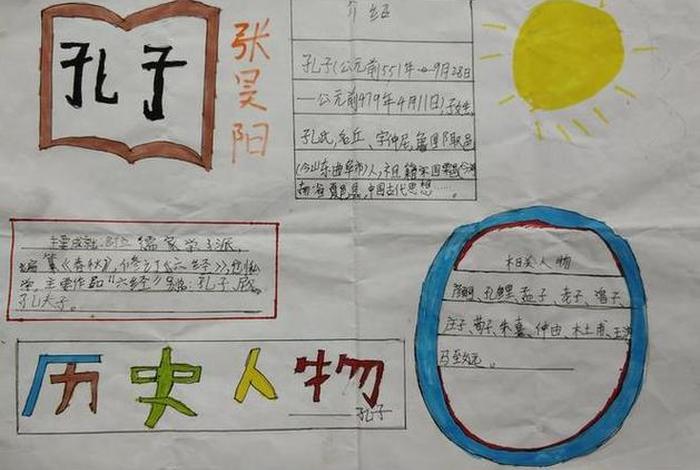 孔子
张昊阳
介绍
孔子(公元前551年 9月28日
—公元前479年4月11日),子姓,
孔氏,名丘、字仲尼,鲁国陬邑
(今山东曲阜市)人,祖籍宋国栗邑(今河
南省夏邑县,中国古代思想……
主要成就:创立儒家学派,
编纂《春秋》,修订《六经》,
主要作品“六经”别名:孔子、尼
孔夫子。
历史人物
孔子
相关人物
颜回、孔鲤、孟子、老子、曾子、
庄子、荀子、朱熹、仲由、